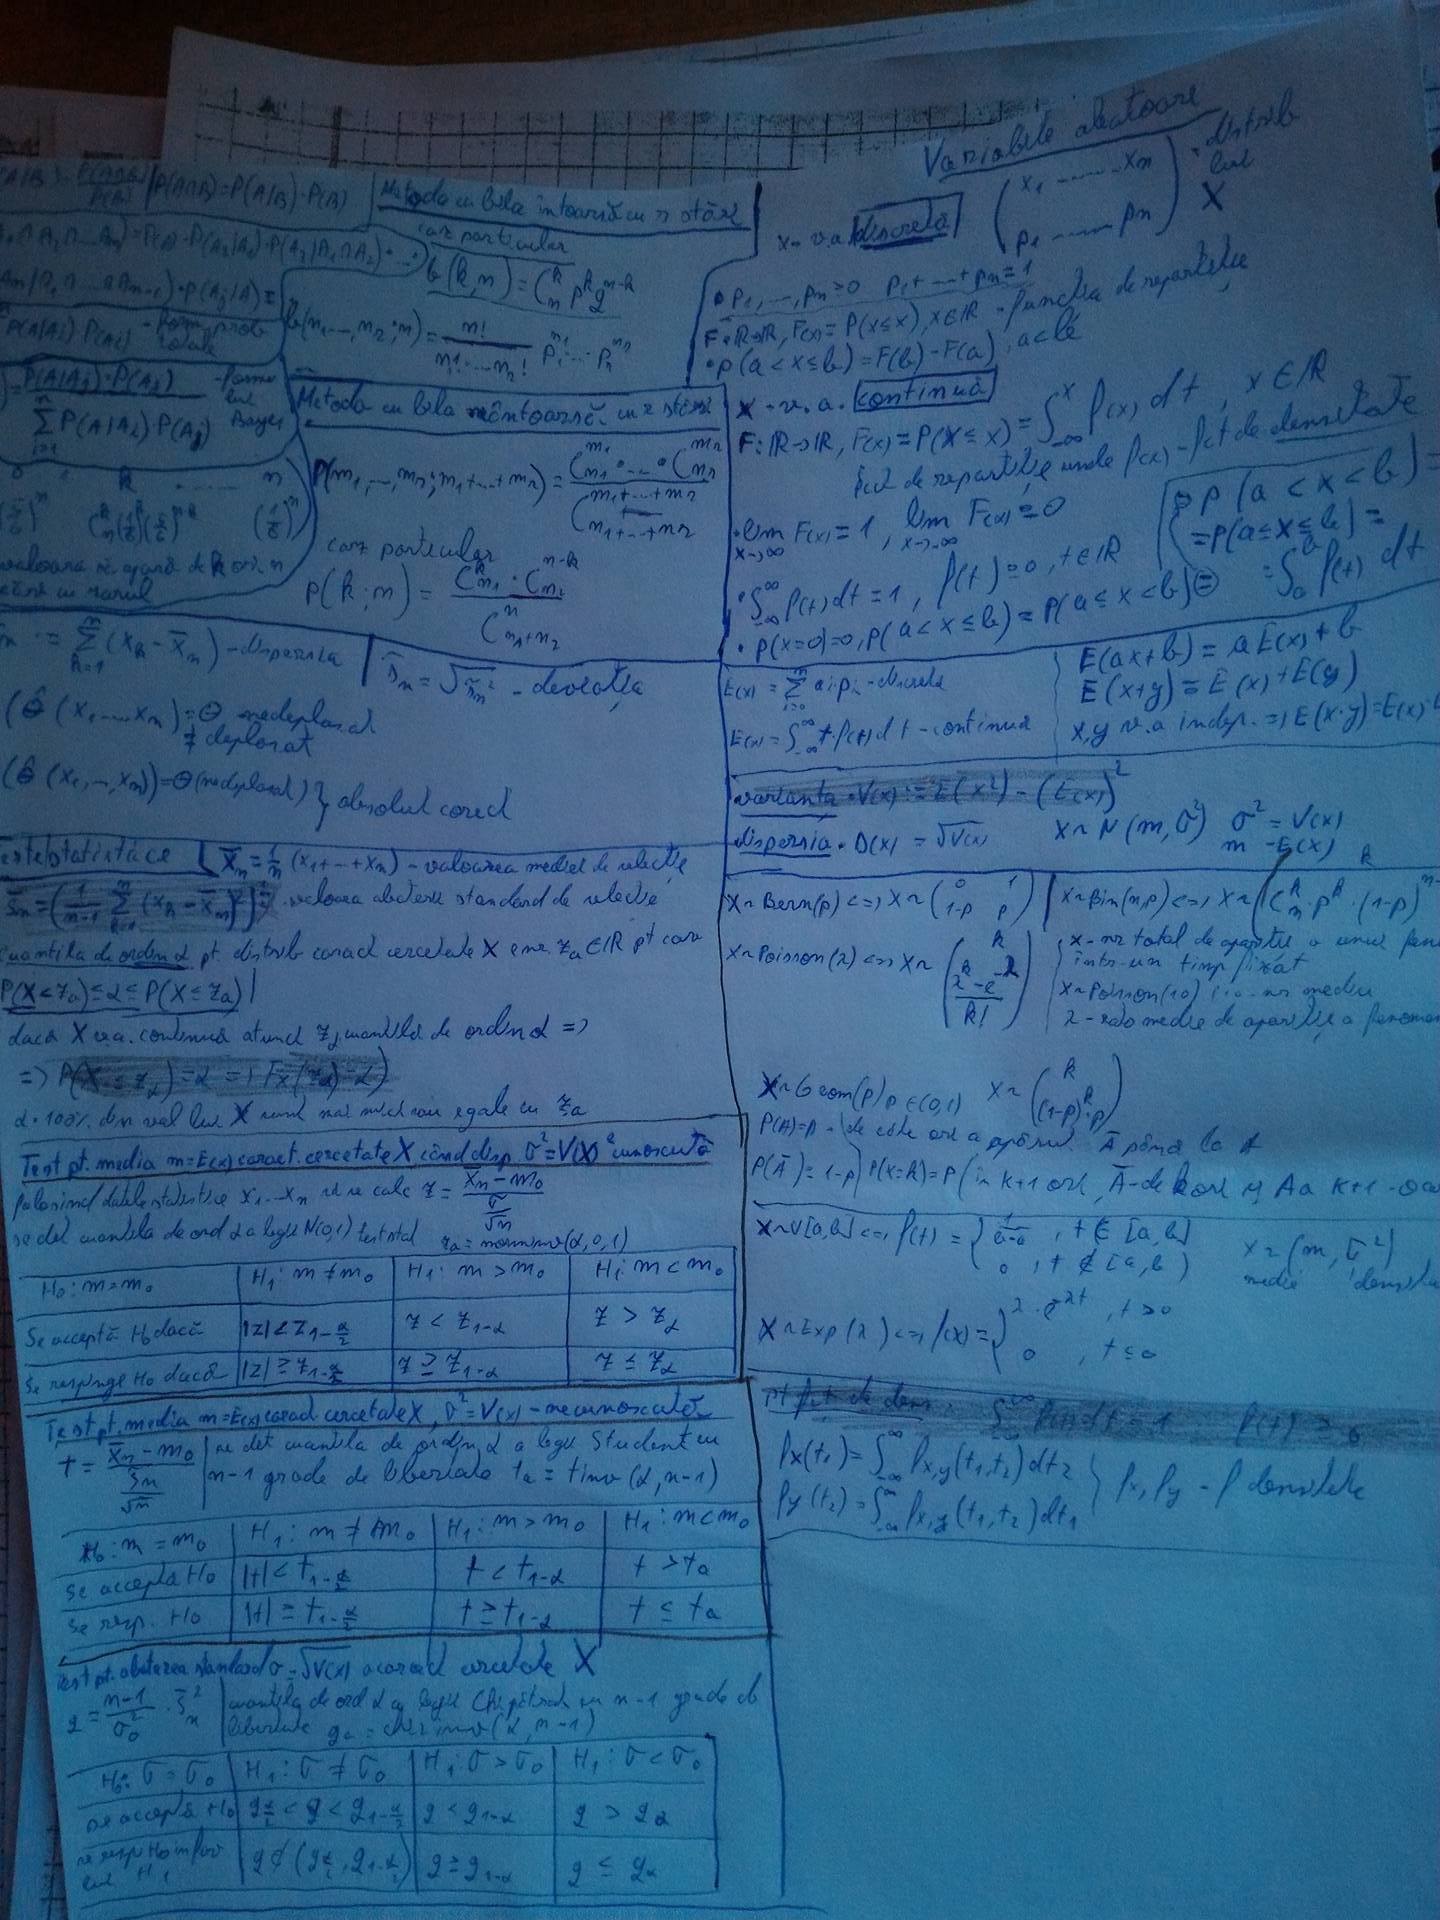 P(A∩B)=P(A|B)·P(B)
Metoda cu bila întoarsă cu r stări
caz particular
b(k,n)=C_n^k p^k q^{n-k}
b(n1...,n2;n)= n!/(n1!...n2!) p1^{n1}...p_r^{n_r}
P(A|Ai)·P(Ai) - form. prob totale
P(A|Aj)·P(Aj) / Σ_{i=1}^n P(A|Ai)·P(Aj) - formu lui Bayes
Metoda cu bila neîntoarsă cu r stări
P(m1,...,m2;m1+...+m2) =
caz particular
P(k;n) = C_{n1}^k · C_{n2}^{n-k} / C_{n1+n2}^n
:= Σ_{k=1}^n (xk - x̄n) - dispersia
s̄n = √s̄n² - deviația
(θ̂(x1,...,xn)=θ nedeplasat
≠ deplasat
(θ̂(x1,...,xn))=θ (nedeplasat) } absolut corect
teste statistice
X̄n = 1/n (x1+...+xn) - valoarea mediei de selecție
s̄n = (1/(n-1) Σ_{k=1}^n (xk - x̄n)²)^{1/2} - valoarea abaterii standard de selecție
cuantila de ordin α pt. distrib caract cercetate X este zα ∈ ℝ pt care
P(X<zα) ≤ α ≤ P(X≤zα)
dacă X v.a. continuă atunci zα cuantilă de ordin α =>
=> P(X ≤ zα)=α => Fx(zα)=α)
α·100% din val lui X sunt mai mici sau egale cu zα
Test pt. media m=E(x) caract. cercetate X când disp. σ²=V(X) e cunoscută
folosind datele statistice x1...xn se calc z = (x̄n - m0)/(σ/√n)
se det cuantila de ord α a legii N(0,1) zα = norminv(α,0,1)
H0: m=m0 H1: m≠m0 H1: m>m0 H1: m<m0
Se acceptă H0 dacă |z|<z_{1-α/2} z<z_{1-α} z>zα
Se respinge H0 dacă |z|≥z_{1-α/2} z≥z_{1-α} z≤zα
Test pt. media m=E(x) caract cercetate X, σ²=V(x) - necunoscută
t = (x̄n - m0)/(s̄n/√n)
se det cuantila de ordin α a legii Student cu
n-1 grade de libertate tα = tinv(α,n-1)
H0: m=m0 H1: m≠m0 H1: m>m0 H1: m<m0
Se acceptă H0 |t|<t_{1-α/2} t<t_{1-α} t>tα
Se resp. H0 |t|≥t_{1-α/2} t≥t_{1-α} t≤tα
Test pt. abaterea standard σ=√V(x) a caract cercetate X
g = (n-1)/σ0² · s̄n²
cuantila de ord α a legii Chi pătrat cu n-1 grade de
libertate gα = chi2inv(α,n-1)
H0: σ=σ0 H1: σ≠σ0 H1: σ>σ0 H1: σ<σ0
se acceptă H0 g_{α/2}<g<g_{1-α/2} g<g_{1-α} g>gα
se resp H0 g∉(g_{α/2},g_{1-α/2}) g≥g_{1-α} g≤gα
Variabile aleatoare
X- v.a. discretă (x1......xn / p1......pn) - distrib lui X
• p1,...,pn>0 p1+...+pn=1
F:ℝ→ℝ, F(x)=P(X≤x), x∈ℝ - functia de repartiție
• p(a<x≤b)=F(b)-F(a), a<b
X - v.a. continuă
F:ℝ→ℝ, F(x)=P(X≤x)=∫_{-∞}^x f(x) dt, x∈ℝ
fct de repartiție unde f(x) - fct de densitate
• lim_{x→∞} F(x)=1, lim_{x→-∞} F(x)=0
• ∫_{-∞}^∞ f(t)dt=1, f(t)≥0, t∈ℝ
• p(x=0)=0, P(a<x≤b)=P(a≤x<b)=
=>P(a<x<b)=
=P(a≤x≤b)=
=∫_a^b f(t) dt
E(x)=Σ_{i=0}^n ai·pi - discretă
E(x)=∫_{-∞}^∞ t·f(t)dt - continuă
E(ax+b)=aE(x)+b
E(x+y)=E(x)+E(y)
x,y v.a indep. => E(x·y)=E(x)·
varianța • V(x):=E(x²)-(E(x))²
dispersia • D(x)=√V(x) X~N(m,σ²) σ²=V(x)
m - E(x)
X~Bern(p) <=> X~(0 1 / 1-p p)
X~Bin(n,p) <=> X~(k / C_n^k·p^k·(1-p)^{n-
X~Poisson(λ) <=> X~(k / λ^k-e^{-λ}/k!)
x-nr total de apariții a unui fen
într-un timp fixat
X~Poisson(10) 10-nr mediu
λ-rata medie de apariție a fenomen
X~Geom(p) p∈(0,1) X~(k / (1-p)^k·p)
P(A)=p - de câte ori a apărut Ā până la A
P(Ā)=1-p P(X=k)=P(în k+1 ori, Ā-de k ori și A a k+1 -oa
X~U[a,b] <=> f(t)={ 1/(b-a), t∈[a,b]
0, t∉[a,b)
X~(m,σ²)
medie densita
X~Exp(λ) <=> f(x)={ λ·e^{-λt}, t>0
0, t≤0
pt fct de dens. ∫_{-∞}^∞ f(t)dt=1 f(t)≥0
fx(t1)=∫_{-∞}^∞ fx,y(t1,t2)dt2
fy(t2)=∫_{-∞}^∞ fx,y(t1,t2)dt1
fx, fy - f densitate